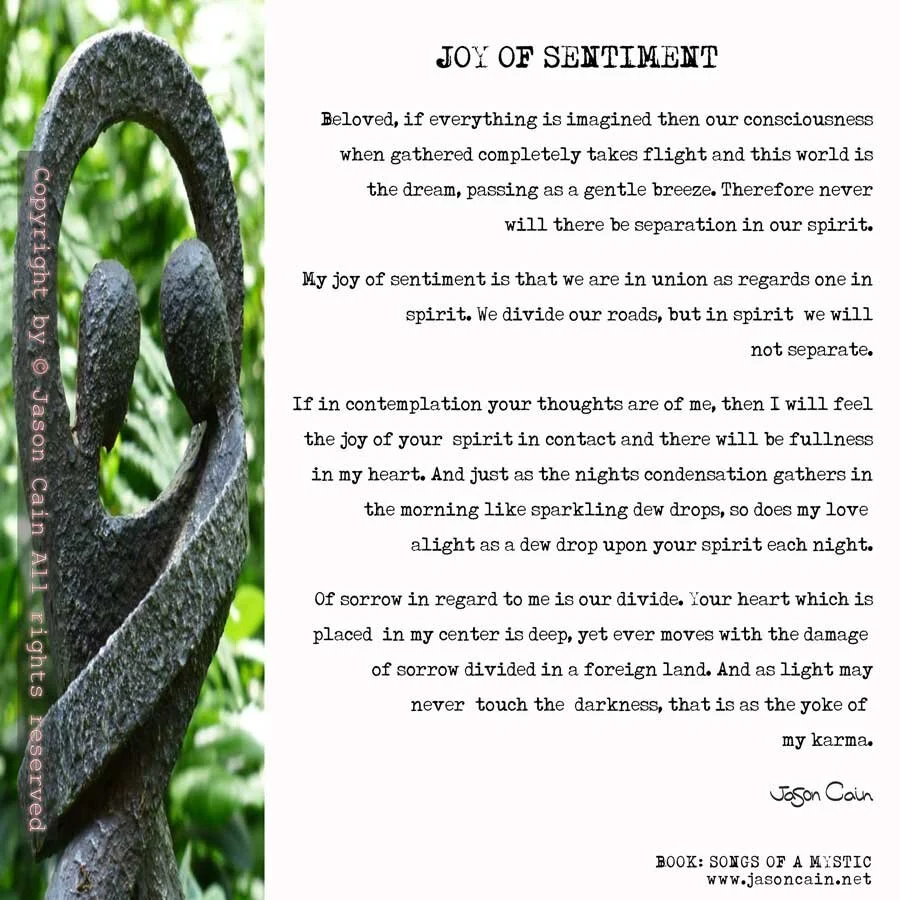 JOY OF SENTIMENT
Beloved, if everything is imagined then our consciousness
when gathered completely takes flight and this world is
the dream, passing as a gentle breeze. Therefore never
will there be separation in our spirit.
My joy of sentiment is that we are in union as regards one in
spirit. We divide our roads, but in spirit we will
not separate.
If in contemplation your thoughts are of me, then I will feel
the joy of your spirit in contact and there will be fullness
in my heart. And just as the nights condensation gathers in
the morning like sparkling dew drops, so does my love
alight as a dew drop upon your spirit each night.
Of sorrow in regard to me is our divide. Your heart which is
placed in my center is deep, yet ever moves with the damage
of sorrow divided in a foreign land. And as light may
never touch the darkness, that is as the yoke of
my karma.
Jason Cain
BOOK: SONGS OF A MYSTIC
www.jasoncain.net
Copyright by © Jason Cain All rights reserved